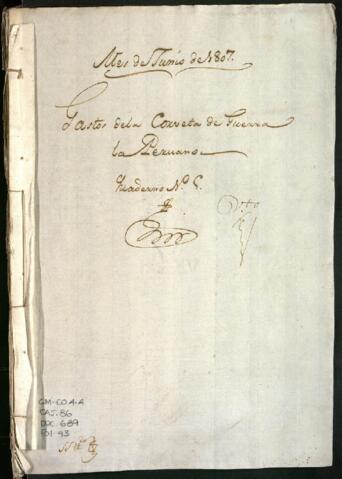 Mes de Junio de 1807.
Gastos dela Corveta de Guerra
la Peruana
Quaderno N.º 5.
GM-CO4-A
CAJ. 86
DOC. 689
FOL. 93